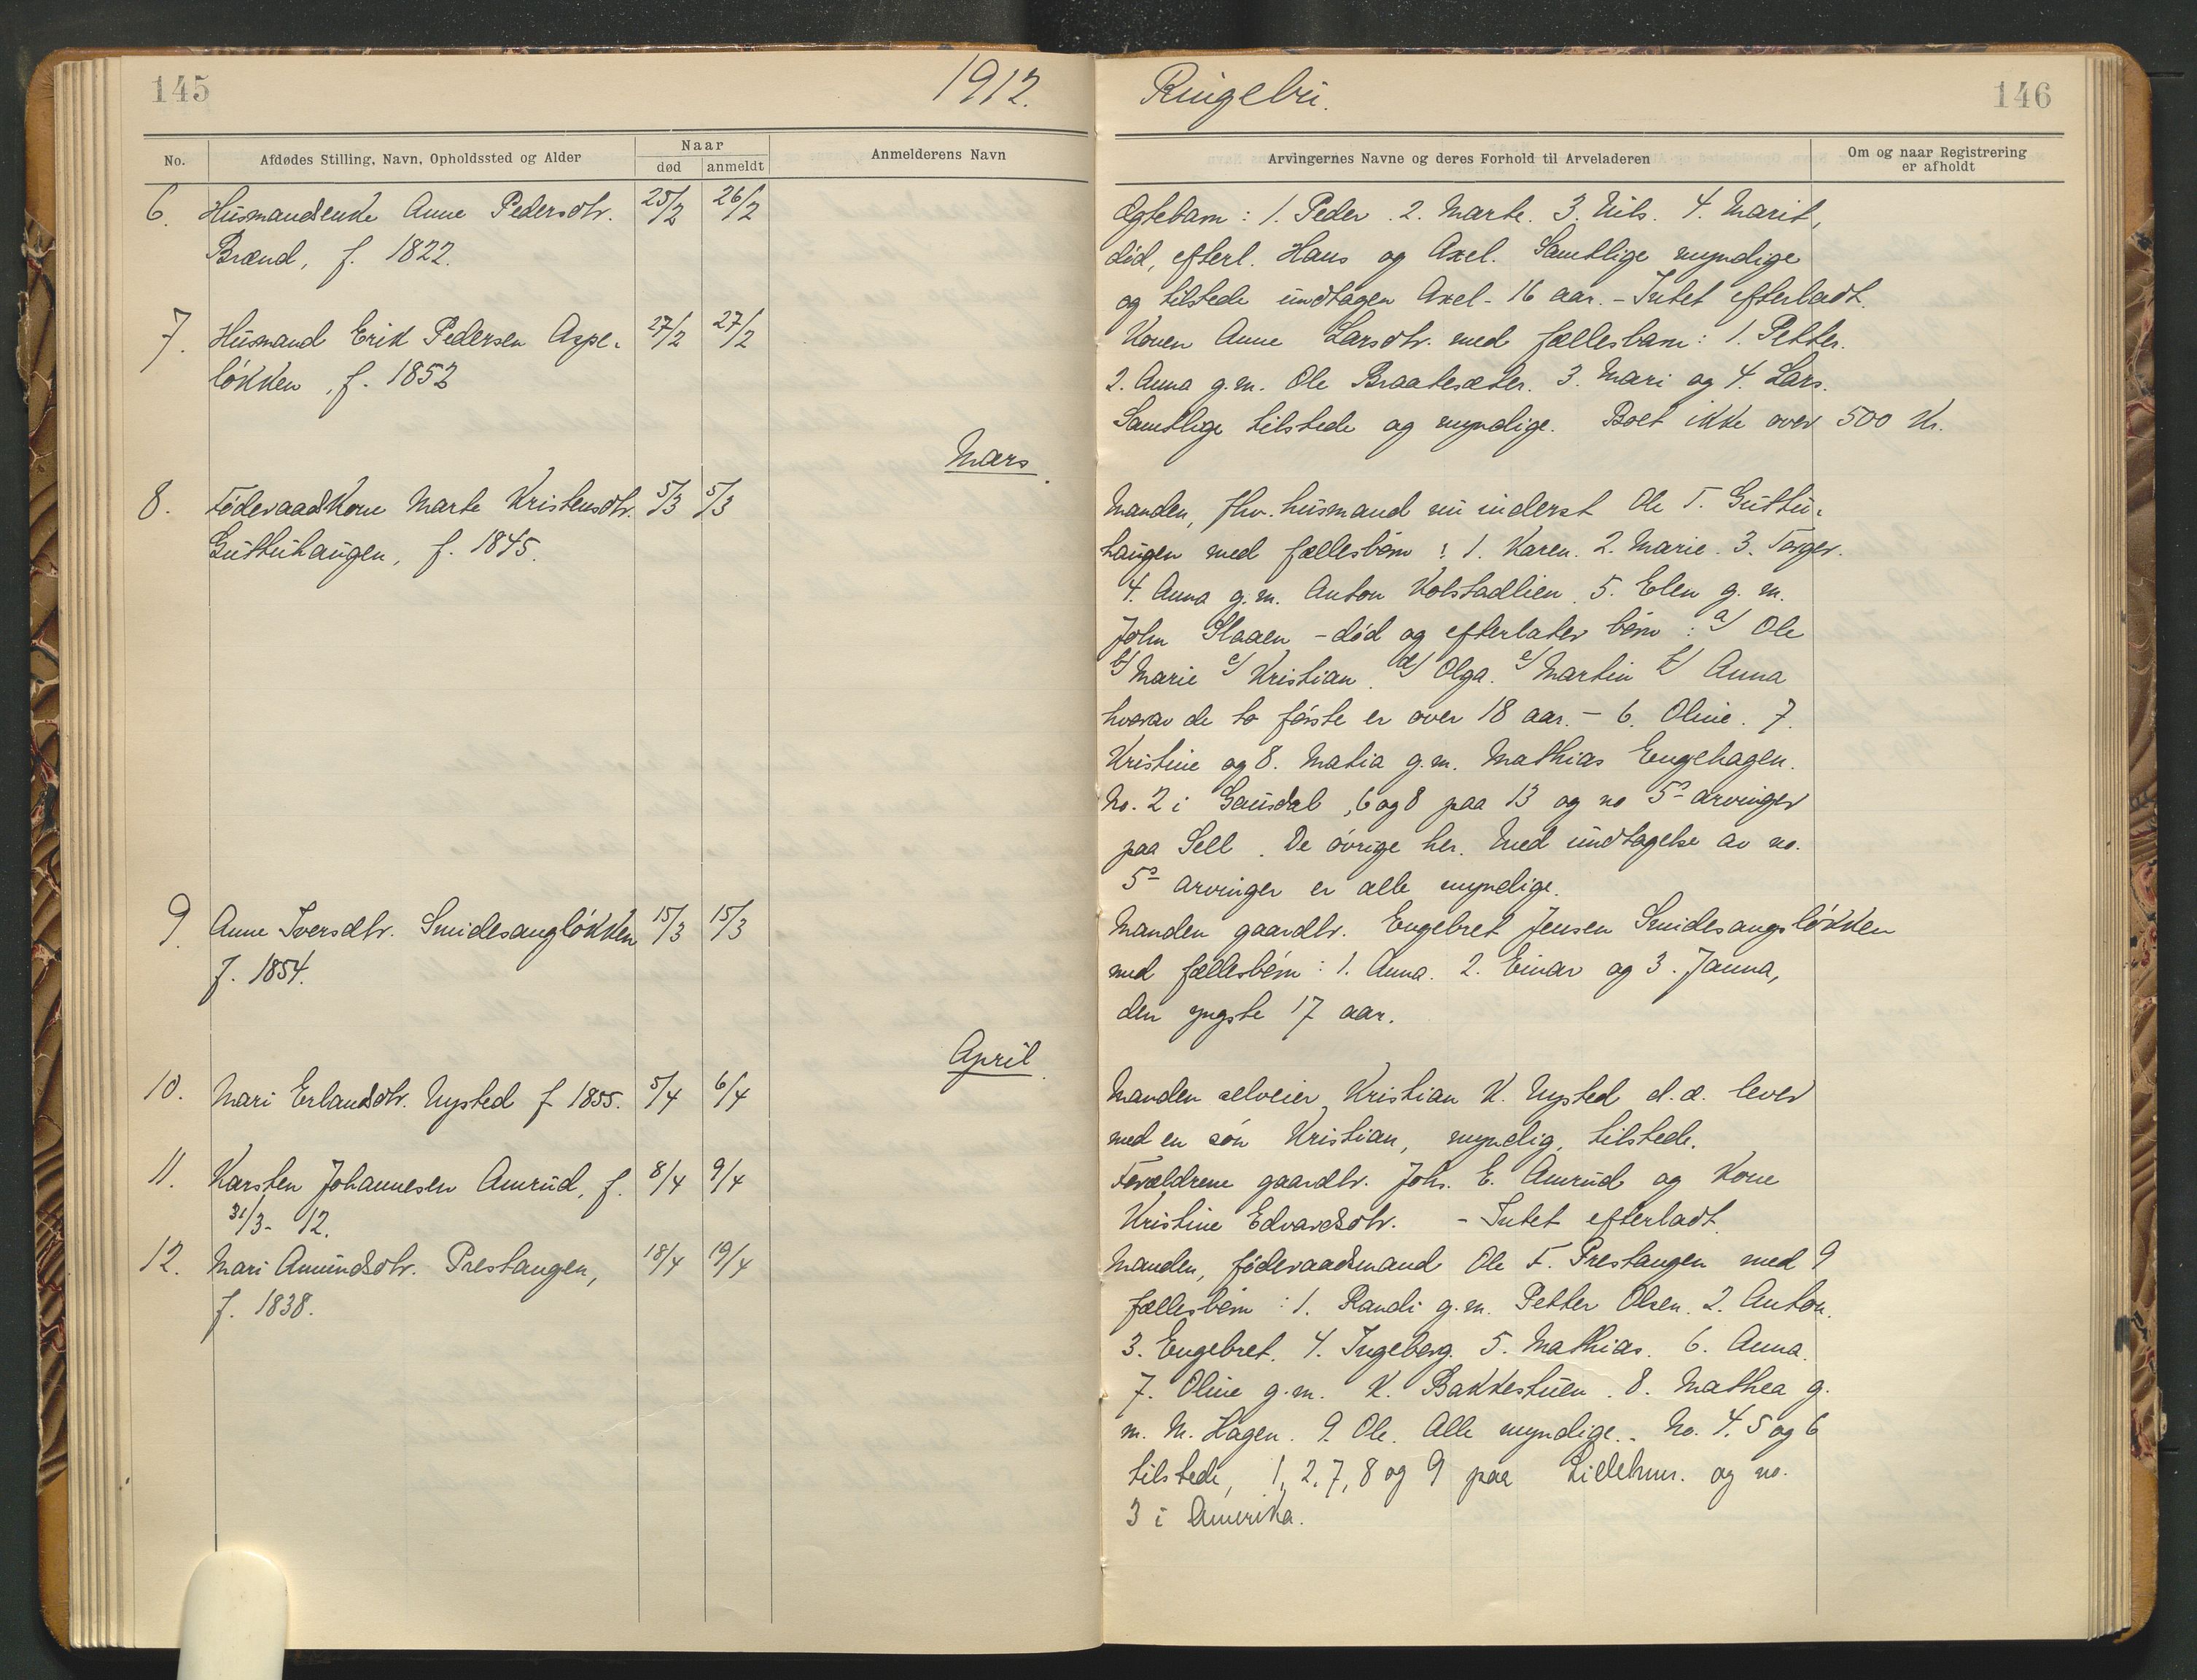 145
1912.
No.
Afdødes Stilling, Navn, Opholdssted og Alder
Naar
død
anmeldt
Anmelderens Navn
6. Husmandsenke Anne Pedersdtr. 25/2 26/2
Brænd, f. 1822.
7. Husmand Erik Pedersen Aspe- 27/2 27/2
løkken, f. 1852
Mars.
8. Føderaadskone Marte Kristensdtr. 5/3 5/3
Guttuhaugen, f. 1845.
9. Anne Iversdtr. Smidesangløkken 15/3 15/3
f. 1854.
April.
10. Mari Erlandsdtr. Nysted f 1855. 5/4 6/4
11. Karsten Johannesen Amrud, f. 8/4 9/4
31/3- 12.
12. Mari Amundsdtr. Prestangen, 18/4 19/4
f. 1838.
Ringebu.
146
Arvingernes Navne og deres Forhold til Arveladeren
Om og naar Registrering
er afholdt
Egtebarn: 1. Peder. 2. Marte. 3. Nils. 4. Marit,
död, efterl. Hans og Axel. Samtlige myndige
og tilstede undtagen Axel - 16 aar. - Intet efterladt.
Konen Anne Larsdtr. med fællesbarn: 1. Petter.
2. Anna g.m. Ole Braatesæter. 3. Mari og 4. Lars.
Samtlige tilstede og myndige. Boet ikke over 500 Kr.
Manden, fhv. husmand nu inderst Ole T. Guttu-
haugen med fællesbörn: 1. Karen. 2. Marie. 3. Torger.
4. Anna g.m. Anton Kolstadlien. 5. Elen g. m.
John Slaaen - død og efterlater börn: a/ Ole
b/ Marie c/ Kristian. d/ Olga. e/ Martin f/ Anna
hvorav de to første er over 18 aar. - 6. Oline. 7.
Kristine og 8. Matia g.m. Mathias Engehagen.
No. 2 i Gausdal, 6 og 8 paa 13 og no 5s arvinger
paa Sell. De øvrige her. Med undtagelse av no.
5s arvinger er alle myndige.
Manden gaardbr. Engebret Jensen Smidesangsløkken
med fællesbörn: 1. Anna. 2. Einar og 3. Janna,
den yngste 17 aar.
Manden selveier Kristian K. Nysted d.æ. lever
med en sön Kristian, myndig, tilstede.
Forældrene gaardbr. Johs. E. Amrud og Kone
Kristine Edvardsdtr. - Intet efterladt.
Manden, føderaadsmand Ole F. Prestangen med 9
fællesbörn: 1. Randi g.m. Petter Olsen. 2. Anton.
3. Engebret. 4. Ingeborg. 5. Mathias. 6. Anna.
7. Oline g.m. K. Bakkestuen. 8. Mathea g.
m. M. Hagen. 9. Ole. Alle myndige. - No. 4. 5 og 6
tilstede, 1, 2, 7, 8 og 9 paa Lillehmr. og no.
3 i Amerika.